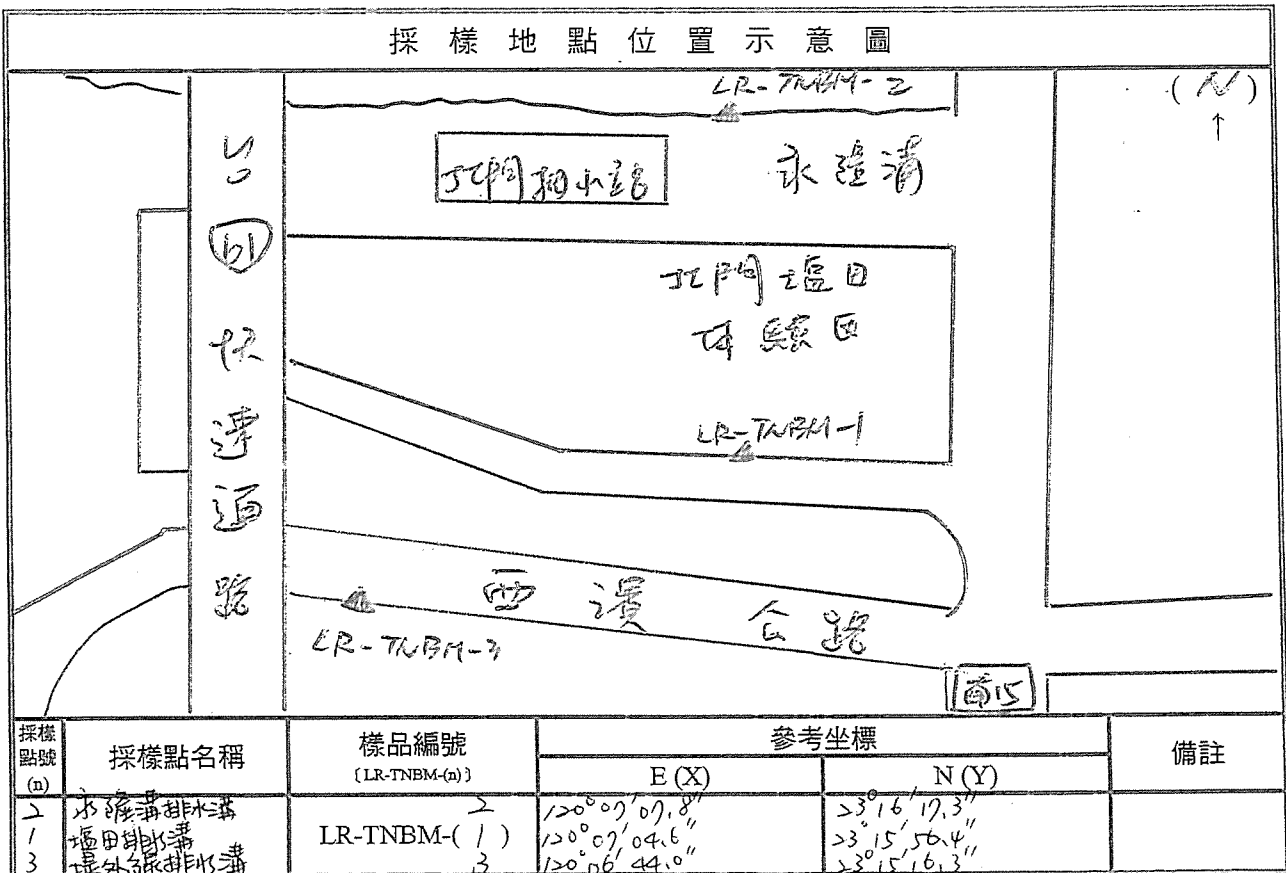 採樣地點位置示意圖
LR-TNBM-2
(N)
↑
台61快速道路
北門抽水站
永隆溝
北門塩田
体驗區
LR-TNBM-1
西濱公路
LR-TNBM-3
南15
採樣點號(n) 採樣點名稱 樣品編號〔LR-TNBM-(n)〕 參考坐標 備註
E (X) N (Y)
2 永隆溝排水溝 2 120°07'07.8" 23°16'17.3"
1 塩田排水溝 LR-TNBM-( 1 ) 120°07'04.6" 23°15'56.4"
3 排水溝 3 120°06'44.0" 23°15'16.3"